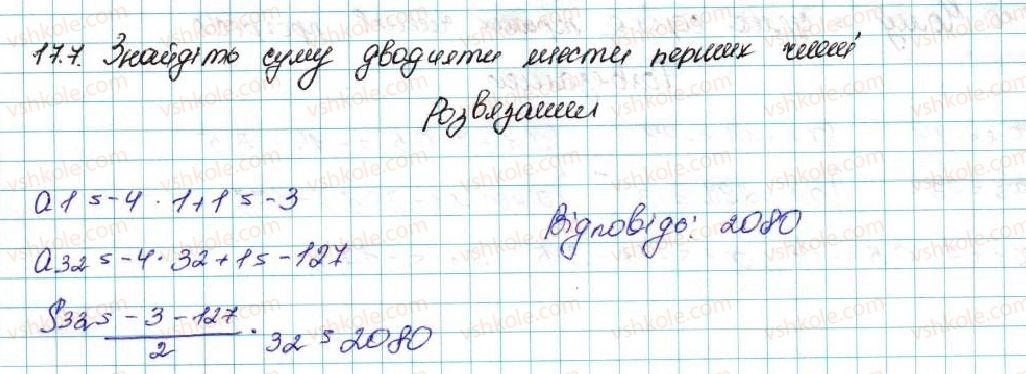 17.7. Знайдіть суму двадцяти шести перших членів
Розвязання
a1 = -4 · 1 + 1 = -3
a32 = -4 · 32 + 1 = -127
Відповідь: 2080
S32 = -3 - 127 / 2 · 32 = 2080
vshkole.com